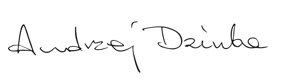 Andrzej Dziuba